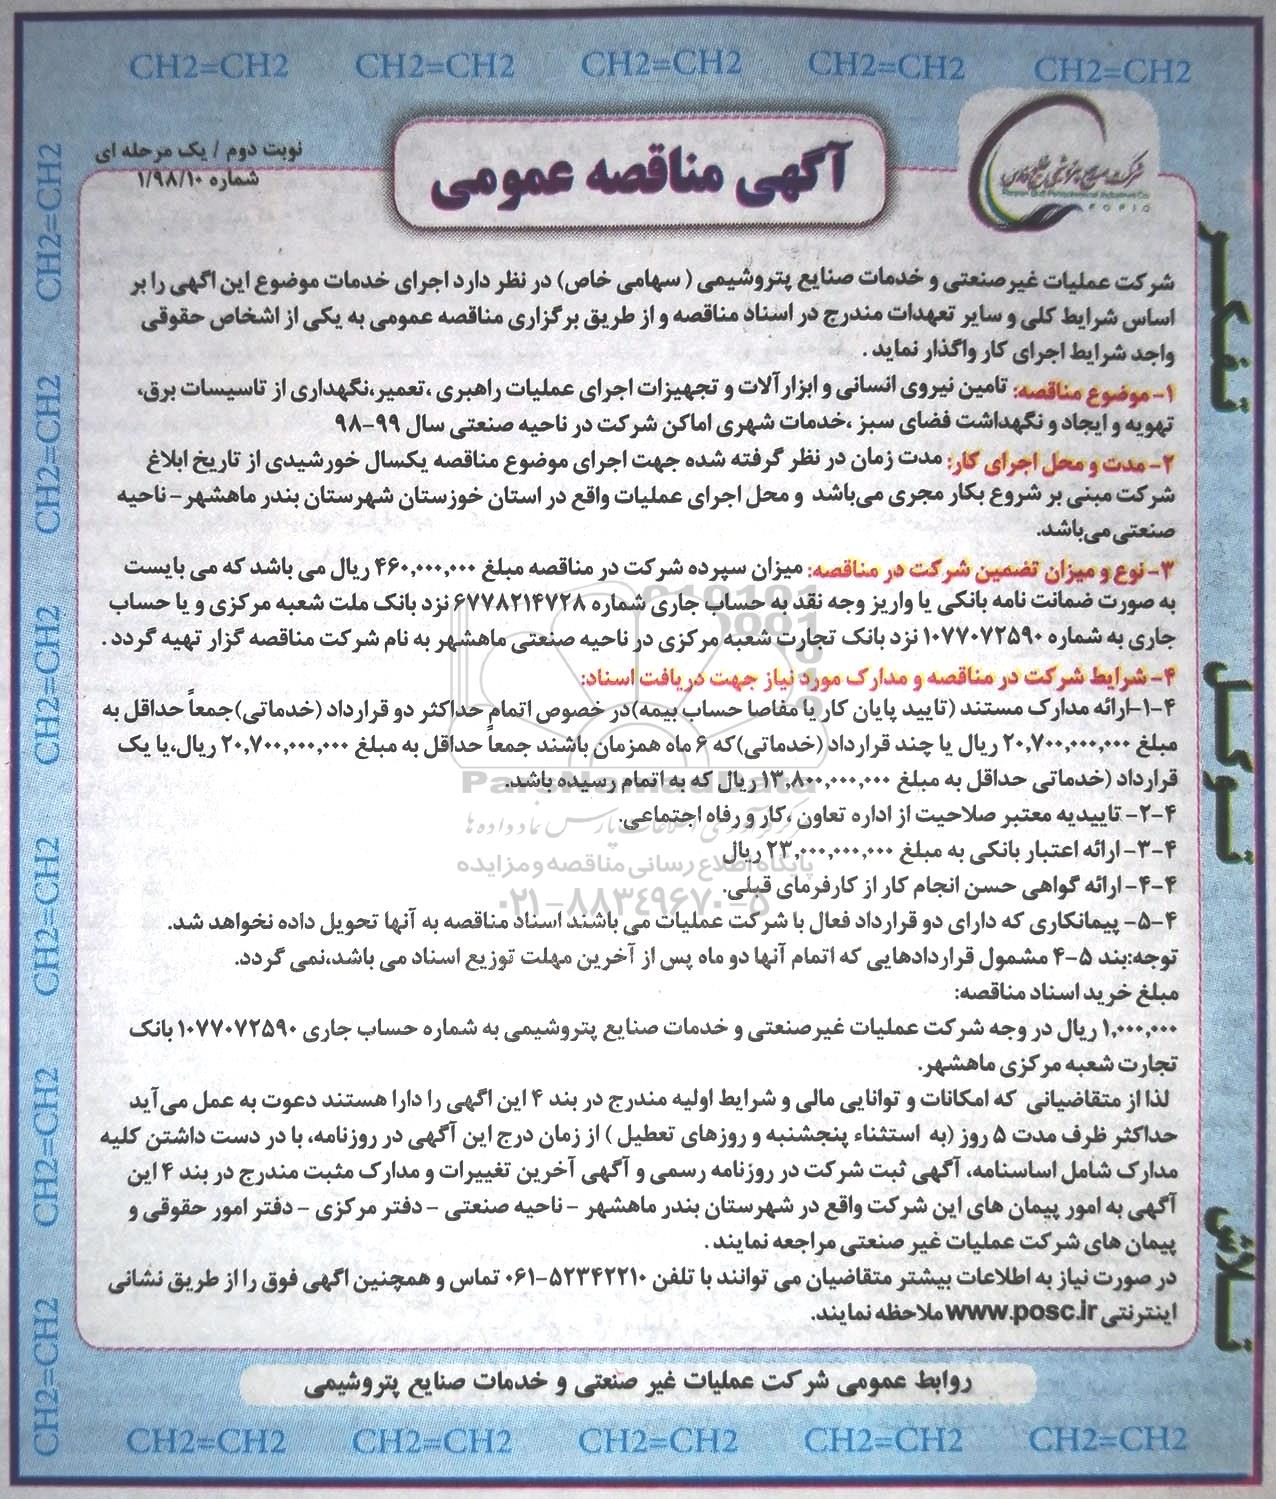 CH2=CH2 CH2=CH2 CH2=CH2 CH2=CH2 CH2=CH2
شرکت صنایع پتروشیمی خلیج فارس
Persian Gulf Petrochemical Industries Co.
P G P I C
آگهی مناقصه عمومی
نوبت دوم / یک مرحله ای
شماره ۱/۹۸/۱۰
شرکت عملیات غیرصنعتی و خدمات صنایع پتروشیمی ( سهامی خاص) در نظر دارد اجرای خدمات موضوع این آگهی را بر
اساس شرایط کلی و سایر تعهدات مندرج در اسناد مناقصه و از طریق برگزاری مناقصه عمومی به یکی از اشخاص حقوقی
واجد شرایط اجرای کار واگذار نماید .
۱- موضوع مناقصه: تامین نیروی انسانی و ابزارآلات و تجهیزات اجرای عملیات راهبری ،تعمیر،نگهداری از تاسیسات برق،
تهویه و ایجاد و نگهداشت فضای سبز ،خدمات شهری اماکن شرکت در ناحیه صنعتی سال ۹۹-۹۸
۲- مدت و محل اجرای کار: مدت زمان در نظر گرفته شده جهت اجرای موضوع مناقصه یکسال خورشیدی از تاریخ ابلاغ
شرکت مبنی بر شروع بکار مجری می‌باشد و محل اجرای عملیات واقع در استان خوزستان شهرستان بندر ماهشهر - ناحیه
صنعتی می‌باشد.
۳- نوع و میزان تضمین شرکت در مناقصه: میزان سپرده شرکت در مناقصه مبلغ ۴۶۰,۰۰۰,۰۰۰ ریال می باشد که می بایست
به صورت ضمانت نامه بانکی یا واریز وجه نقد به حساب جاری شماره ۶۷۷۸۲۱۴۷۲۸ نزد بانک ملت شعبه مرکزی و یا حساب
جاری به شماره ۱۰۷۷۰۷۲۵۹۰ نزد بانک تجارت شعبه مرکزی در ناحیه صنعتی ماهشهر به نام شرکت مناقصه گزار تهیه گردد .
۴- شرایط شرکت در مناقصه و مدارک مورد نیاز جهت دریافت اسناد:
۴-۱-ارائه مدارک مستند (تایید پایان کار یا مفاصا حساب بیمه)در خصوص اتمام حداکثر دو قرارداد (خدماتی)جمعاً حداقل به
مبلغ ۲۰,۷۰۰,۰۰۰,۰۰۰ ریال یا چند قرارداد (خدماتی)که ۶ ماه همزمان باشند جمعاً حداقل به مبلغ ۲۰,۷۰۰,۰۰۰,۰۰۰ ریال،یا یک
قرارداد (خدماتی حداقل به مبلغ ۱۳,۸۰۰,۰۰۰,۰۰۰ ریال که به اتمام رسیده باشد.
۴-۲- تاییدیه معتبر صلاحیت از اداره تعاون ،کار و رفاه اجتماعی.
۴-۳- ارائه اعتبار بانکی به مبلغ ۲۳,۰۰۰,۰۰۰,۰۰۰ ریال
۴-۴- ارائه گواهی حسن انجام کار از کارفرمای قبلی.
۴-۵- پیمانکاری که دارای دو قرارداد فعال با شرکت عملیات می باشند اسناد مناقصه به آنها تحویل داده نخواهد شد.
توجه:بند ۵-۴ مشمول قراردادهایی که اتمام آنها دو ماه پس از آخرین مهلت توزیع اسناد می باشد،نمی گردد.
مبلغ خرید اسناد مناقصه:
۱,۰۰۰,۰۰۰ ریال در وجه شرکت عملیات غیرصنعتی و خدمات صنایع پتروشیمی به شماره حساب جاری ۱۰۷۷۰۷۲۵۹۰ بانک
تجارت شعبه مرکزی ماهشهر.
لذا از متقاضیانی که امکانات و توانایی مالی و شرایط اولیه مندرج در بند ۴ این اگهی را دارا هستند دعوت به عمل می‌آید
حداکثر ظرف مدت ۵ روز (به استثناء پنجشنبه و روزهای تعطیل ) از زمان درج این آگهی در روزنامه، با در دست داشتن کلیه
مدارک شامل اساسنامه، آگهی ثبت شرکت در روزنامه رسمی و آگهی آخرین تغییرات و مدارک مثبت مندرج در بند ۴ این
آگهی به امور پیمان های این شرکت واقع در شهرستان بندر ماهشهر - ناحیه صنعتی - دفتر مرکزی - دفتر امور حقوقی و
پیمان های شرکت عملیات غیر صنعتی مراجعه نمایند .
در صورت نیاز به اطلاعات بیشتر متقاضیان می توانند با تلفن ۵۲۳۴۲۲۱۰-۰۶۱ تماس و همچنین اگهی فوق را از طریق نشانی
اینترنتی www.posc.ir ملاحظه نمایند.
روابط عمومی شرکت عملیات غیر صنعتی و خدمات صنایع پتروشیمی
CH2=CH2 CH2=CH2 CH2=CH2 CH2=CH2 CH2=CH2
CH2=CH2 CH2=CH2 CH2=CH2 CH2=CH2 CH2=CH2 CH2=CH2
تفکر
توکل
تلاش
ParsNamadData
مرکز فرآوری اطلاعات پارس نماد داده ها
پایگاه اطلاع رسانی مناقصه و مزایده
۰۲۱-۸۸۳۴۹۶۷۰-۵